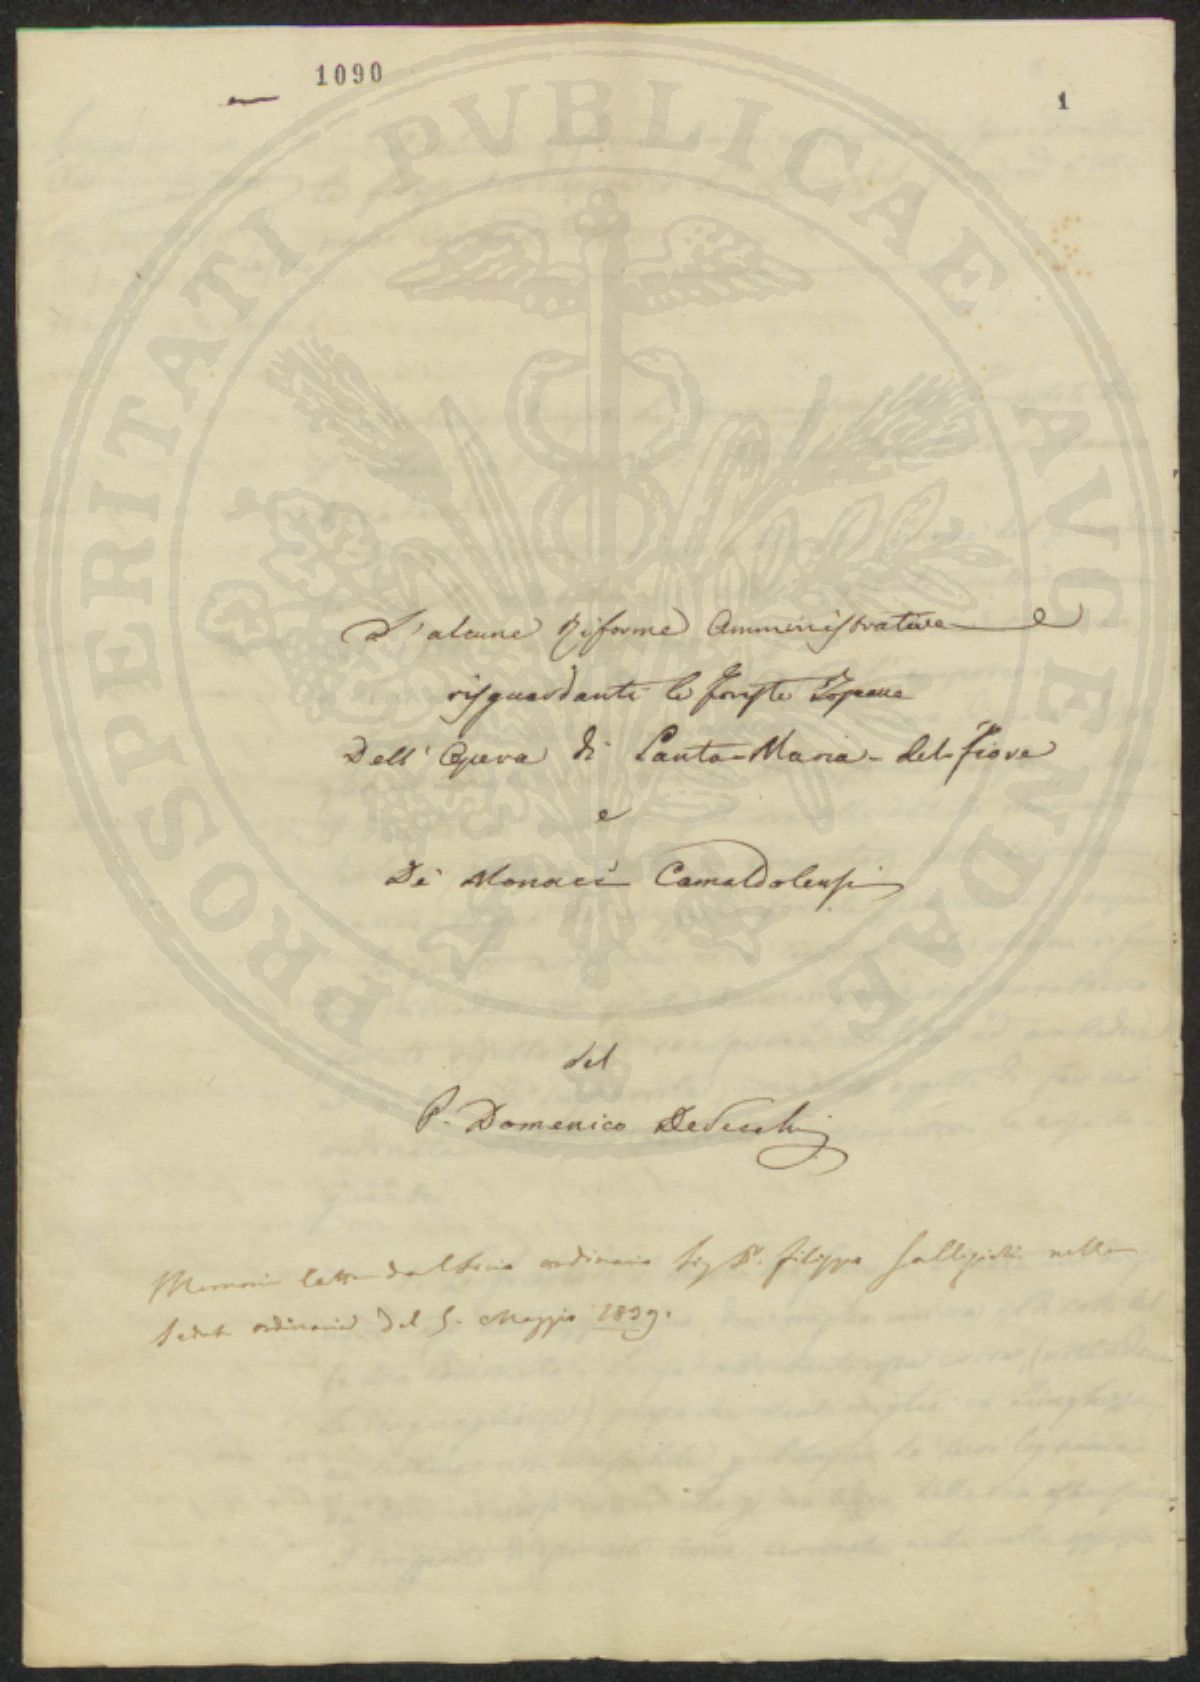 1090
1
D'alcune Riforme Amministrative e
risguardanti le foreste Toscane
Dell'Opera di Santa-Maria-del-fiore
e
De' Monaci Camaldolensi
del
P. Domenico Devecchi
Memoria letta dal Socio ordinario Sig. Filippo Gallizioli nella
Seduta ordinaria del 5. Maggio 1839.
PROSPERITATI PVBLICAE AVGENDAE